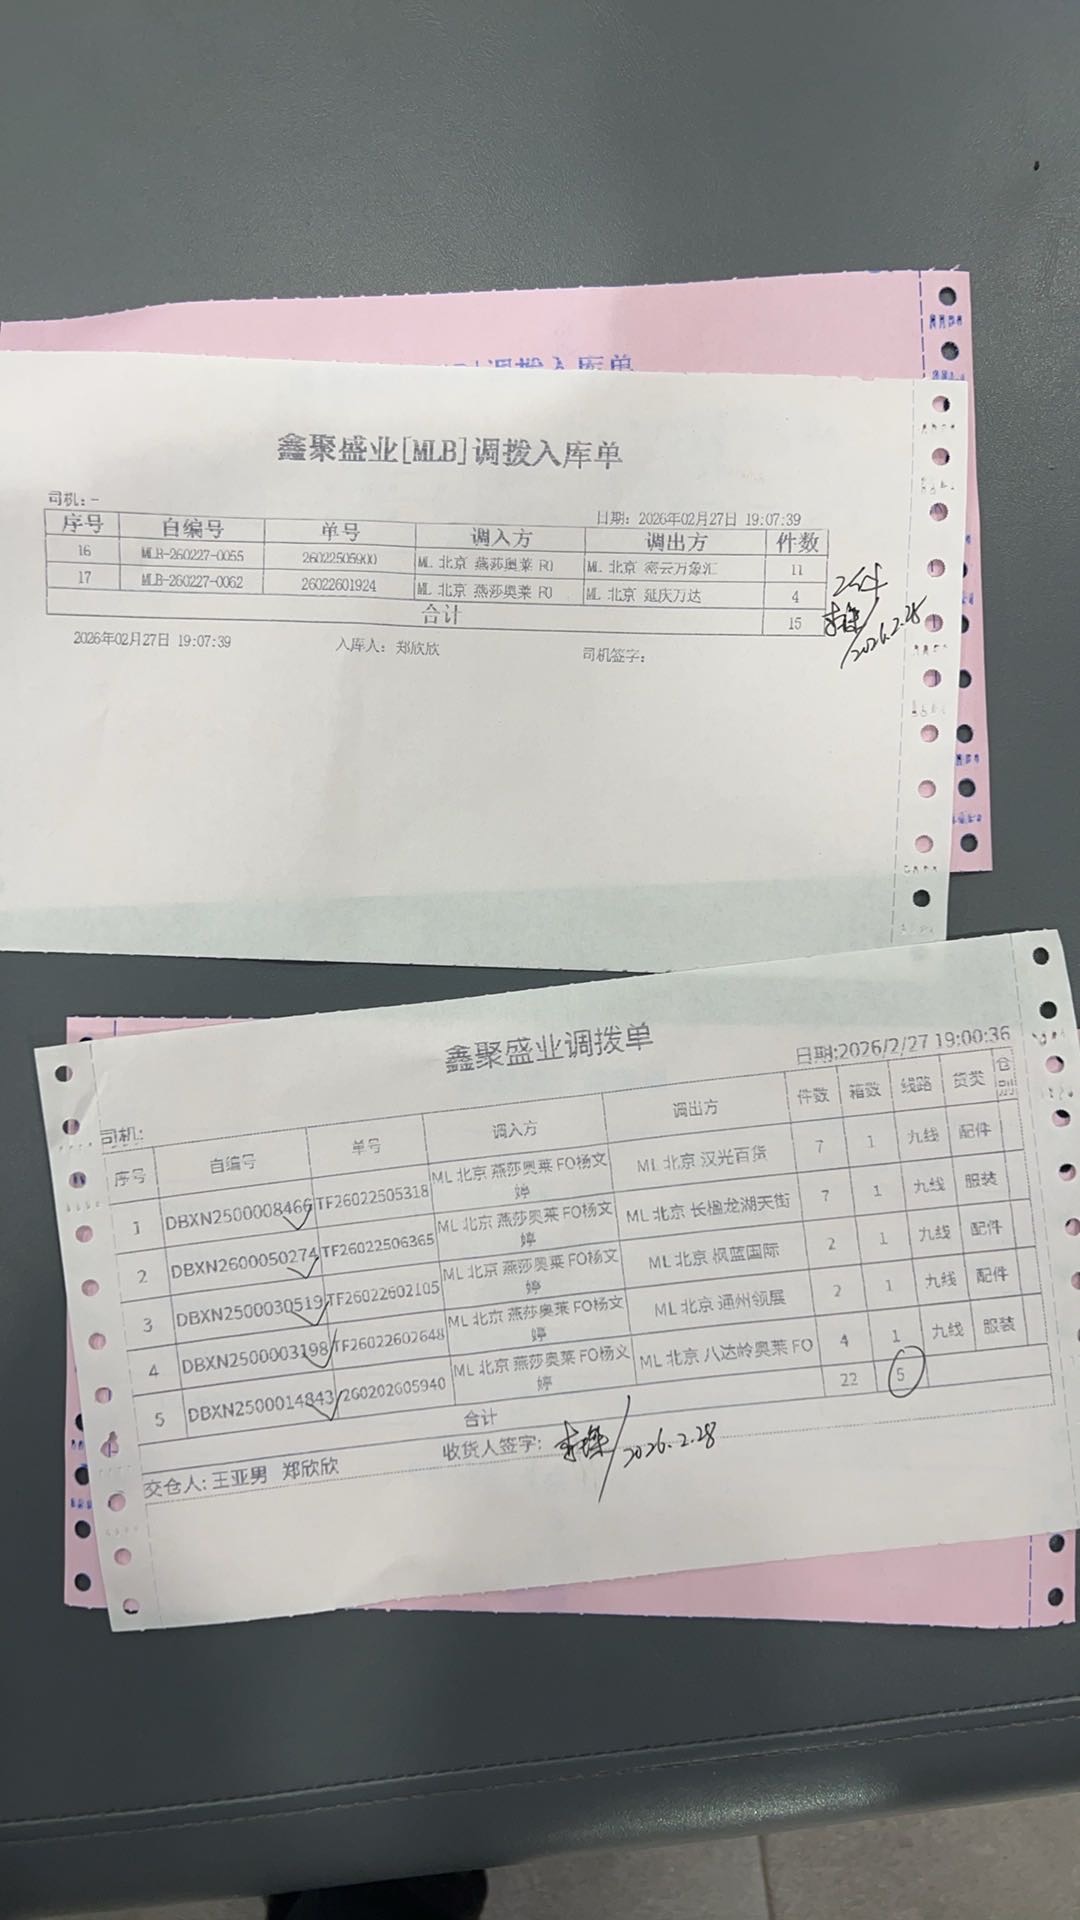 调拨入库单
鑫聚盛业[MLB]调拨入库单
司机：-
日期：2026年02月27日 19:07:39
序号 自编号 单号 调入方 调出方 件数
16 MLB-260227-0055 26022505900 ML 北京 燕莎奥莱 FO ML 北京 密云万象汇 11
17 MLB-260227-0062 26022601924 ML 北京 燕莎奥莱 FO ML 北京 延庆万达 4
合计 15
2026年02月27日 19:07:39 入库人：郑欣欣 司机签字：
2026.2.28
鑫聚盛业调拨单
日期:2026/2/27 19:00:36
司机:
序号 自编号 单号 调入方 调出方 件数 箱数 线路 货类 仓别
1 DBXN2500008466 TF26022505318 ML 北京 燕莎奥莱 FO杨文婷 ML 北京 汉光百货 7 1 九线 配件
2 DBXN2600050274 TF26022506365 ML 北京 燕莎奥莱 FO杨文婷 ML 北京 长楹龙湖天街 7 1 九线 服装
3 DBXN2500030519 TF26022602105 ML 北京 燕莎奥莱 FO杨文婷 ML 北京 枫蓝国际 2 1 九线 配件
4 DBXN2500003198 TF26022602648 ML 北京 燕莎奥莱 FO杨文婷 ML 北京 通州领展 2 1 九线 配件
5 DBXN2500014843 260202605940 ML 北京 燕莎奥莱 FO杨文婷 ML 北京 八达岭奥莱 FO 4 1 九线 服装
合计 22 5
交仓人: 王亚男 郑欣欣 收货人签字: 2026.2.28